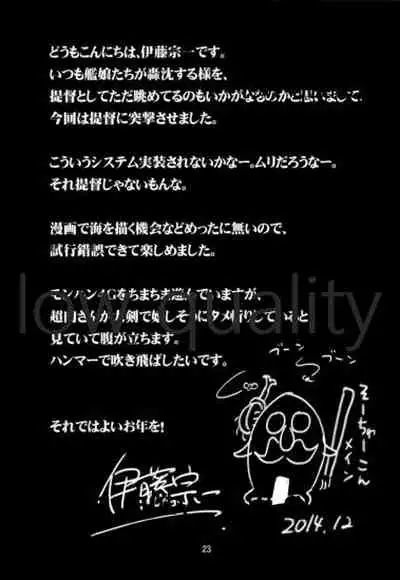 どうもこんにちは、伊藤宗一です。
いつも艦娘たちが轟沈する様を、
提督としてただ眺めてるのもいかがなものかと思いまして、
今回は提督に突撃させました。
こういうシステム実装されないかなー。ムリだろうなー。
それ提督じゃないもんな。
漫画で海を描く機会などめったに無いので、
試行錯誤できて楽しめました。
モンハン4Gをちまちま遊んでいますが、
見ていて腹が立ちます。
ハンマーで吹き飛ばしたいです。
それではよいお年を!
ブーン
ブーン
メイン
伊藤宗一
2014.12
23
low quality